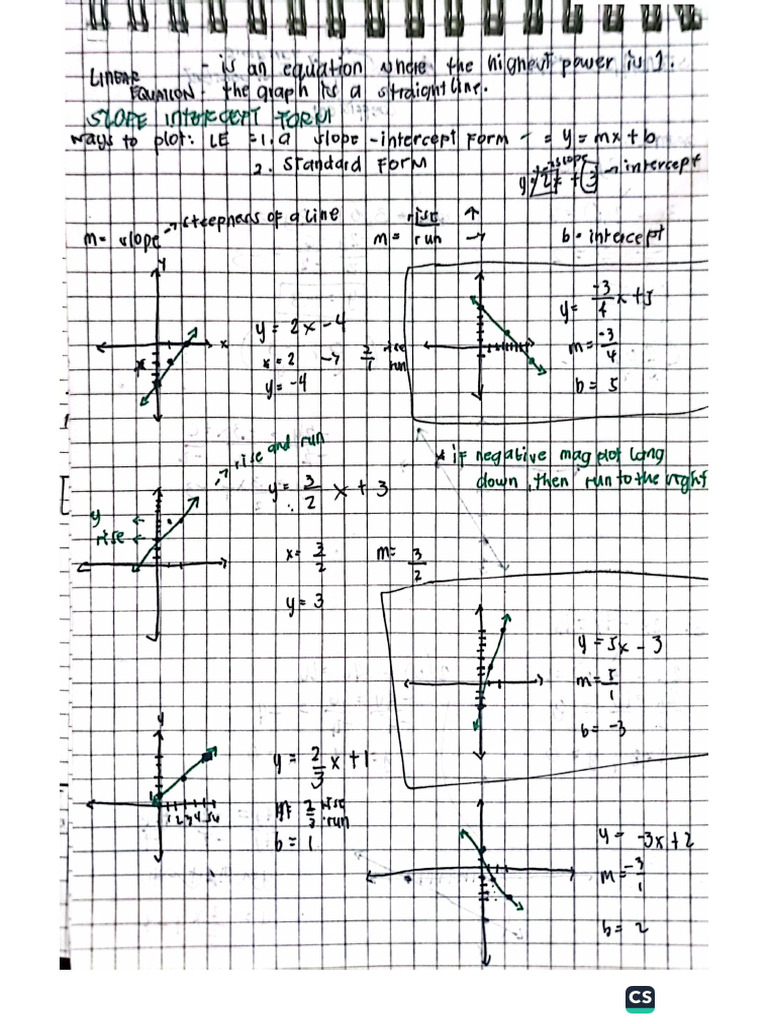 LINEAR - is an equation where the highest power is 1.
EQUATION - the graph is a straight line.
SLOPE INTERCEPT FORM
ways to plot: LE = 1. a slope-intercept form - = y = mx + b
2. Standard Form
slope
y = 2x + 3 → intercept
m = slope → steepness of a line
m = rise ↑
run →
b = intercept
y
x
y = 2x - 4
x = 2 → 2/1 rise
run
y = -4
y = -3/4 x + 5
m = -3/4
b = 5
* if negative mag plot long
down, then run to the right
→ rise and run
y
rise
y = 3/2 x + 3
x = 3/2
m = 3/2
y = 3
y = 5x - 3
m = 5/1
b = -3
y
1 2 3 4 5 6
y = 2/3 x + 1
m = 2/3 rise
run
b = 1
y = -3x + 2
m = -3/1
b = 2
CS